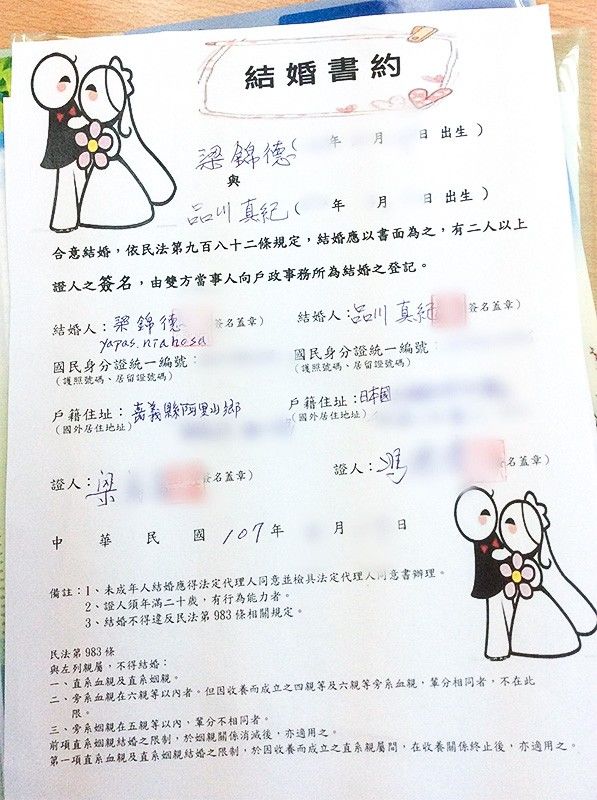 結婚書約
梁錦德( 年 月 日出生)
與
品川真紀( 年 月 日出生)
合意結婚，依民法第九百八十二條規定，結婚應以書面為之，有二人以上
證人之簽名，由雙方當事人向戶政事務所為結婚之登記。
結婚人：梁錦德 簽名蓋章) 結婚人：品川真紀 簽名蓋章)
yapas.niahosa
國民身分證統一編號： 國民身分證統一編號：
(護照號碼、居留證號碼) (護照號碼、居留證號碼)
戶籍住址：嘉義縣阿里山鄉 戶籍住址：日本國
(國外居住地址) (國外居住地址)
證人：梁 簽名蓋章) 證人：馮 簽名蓋章)
中華民國107年 月 日
備註：1、未成年人結婚應得法定代理人同意並檢具法定代理人同意書辦理。
2、證人須年滿二十歲，有行為能力者。
3、結婚不得違反民法第983條相關規定。
民法第983條
與左列親屬，不得結婚：
一、直系血親及直系姻親。
二、旁系血親在六親等以內者。但因收養而成立之四親等及六親等旁系血親，輩分相同者，不在此
限。
三、旁系姻親在五親等以內、輩分不相同者。
前項直系姻親結婚之限制，於姻親關係消滅後，亦適用之。
第一項直系血親及直系姻親結婚之限制，於因收養而成立之直系親屬間，在收養關係終止後，亦適用之。